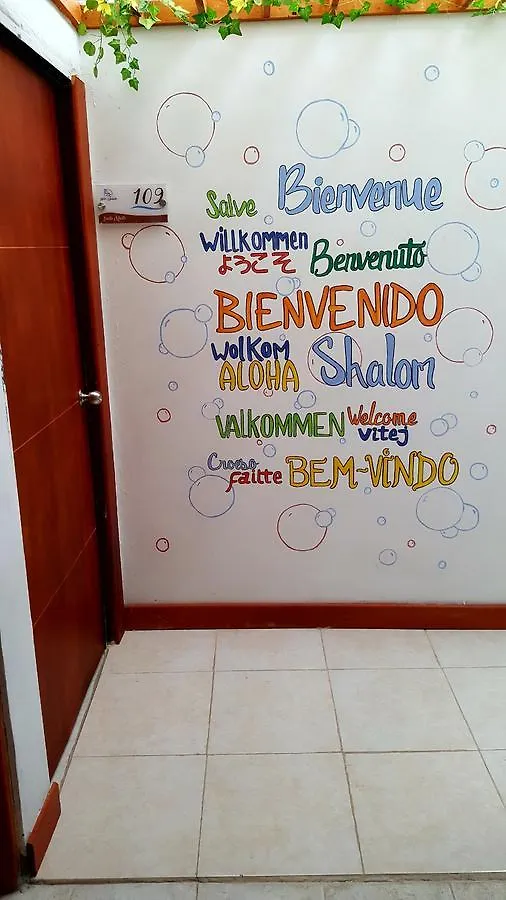 109
Salve Bienvenue
Willkommen
ようこそ Benvenuto
BIENVENIDO
Wolkom Shalom
ALOHA
VALKOMMEN Welcome
vitej
Croeso
failte BEM-VINDO